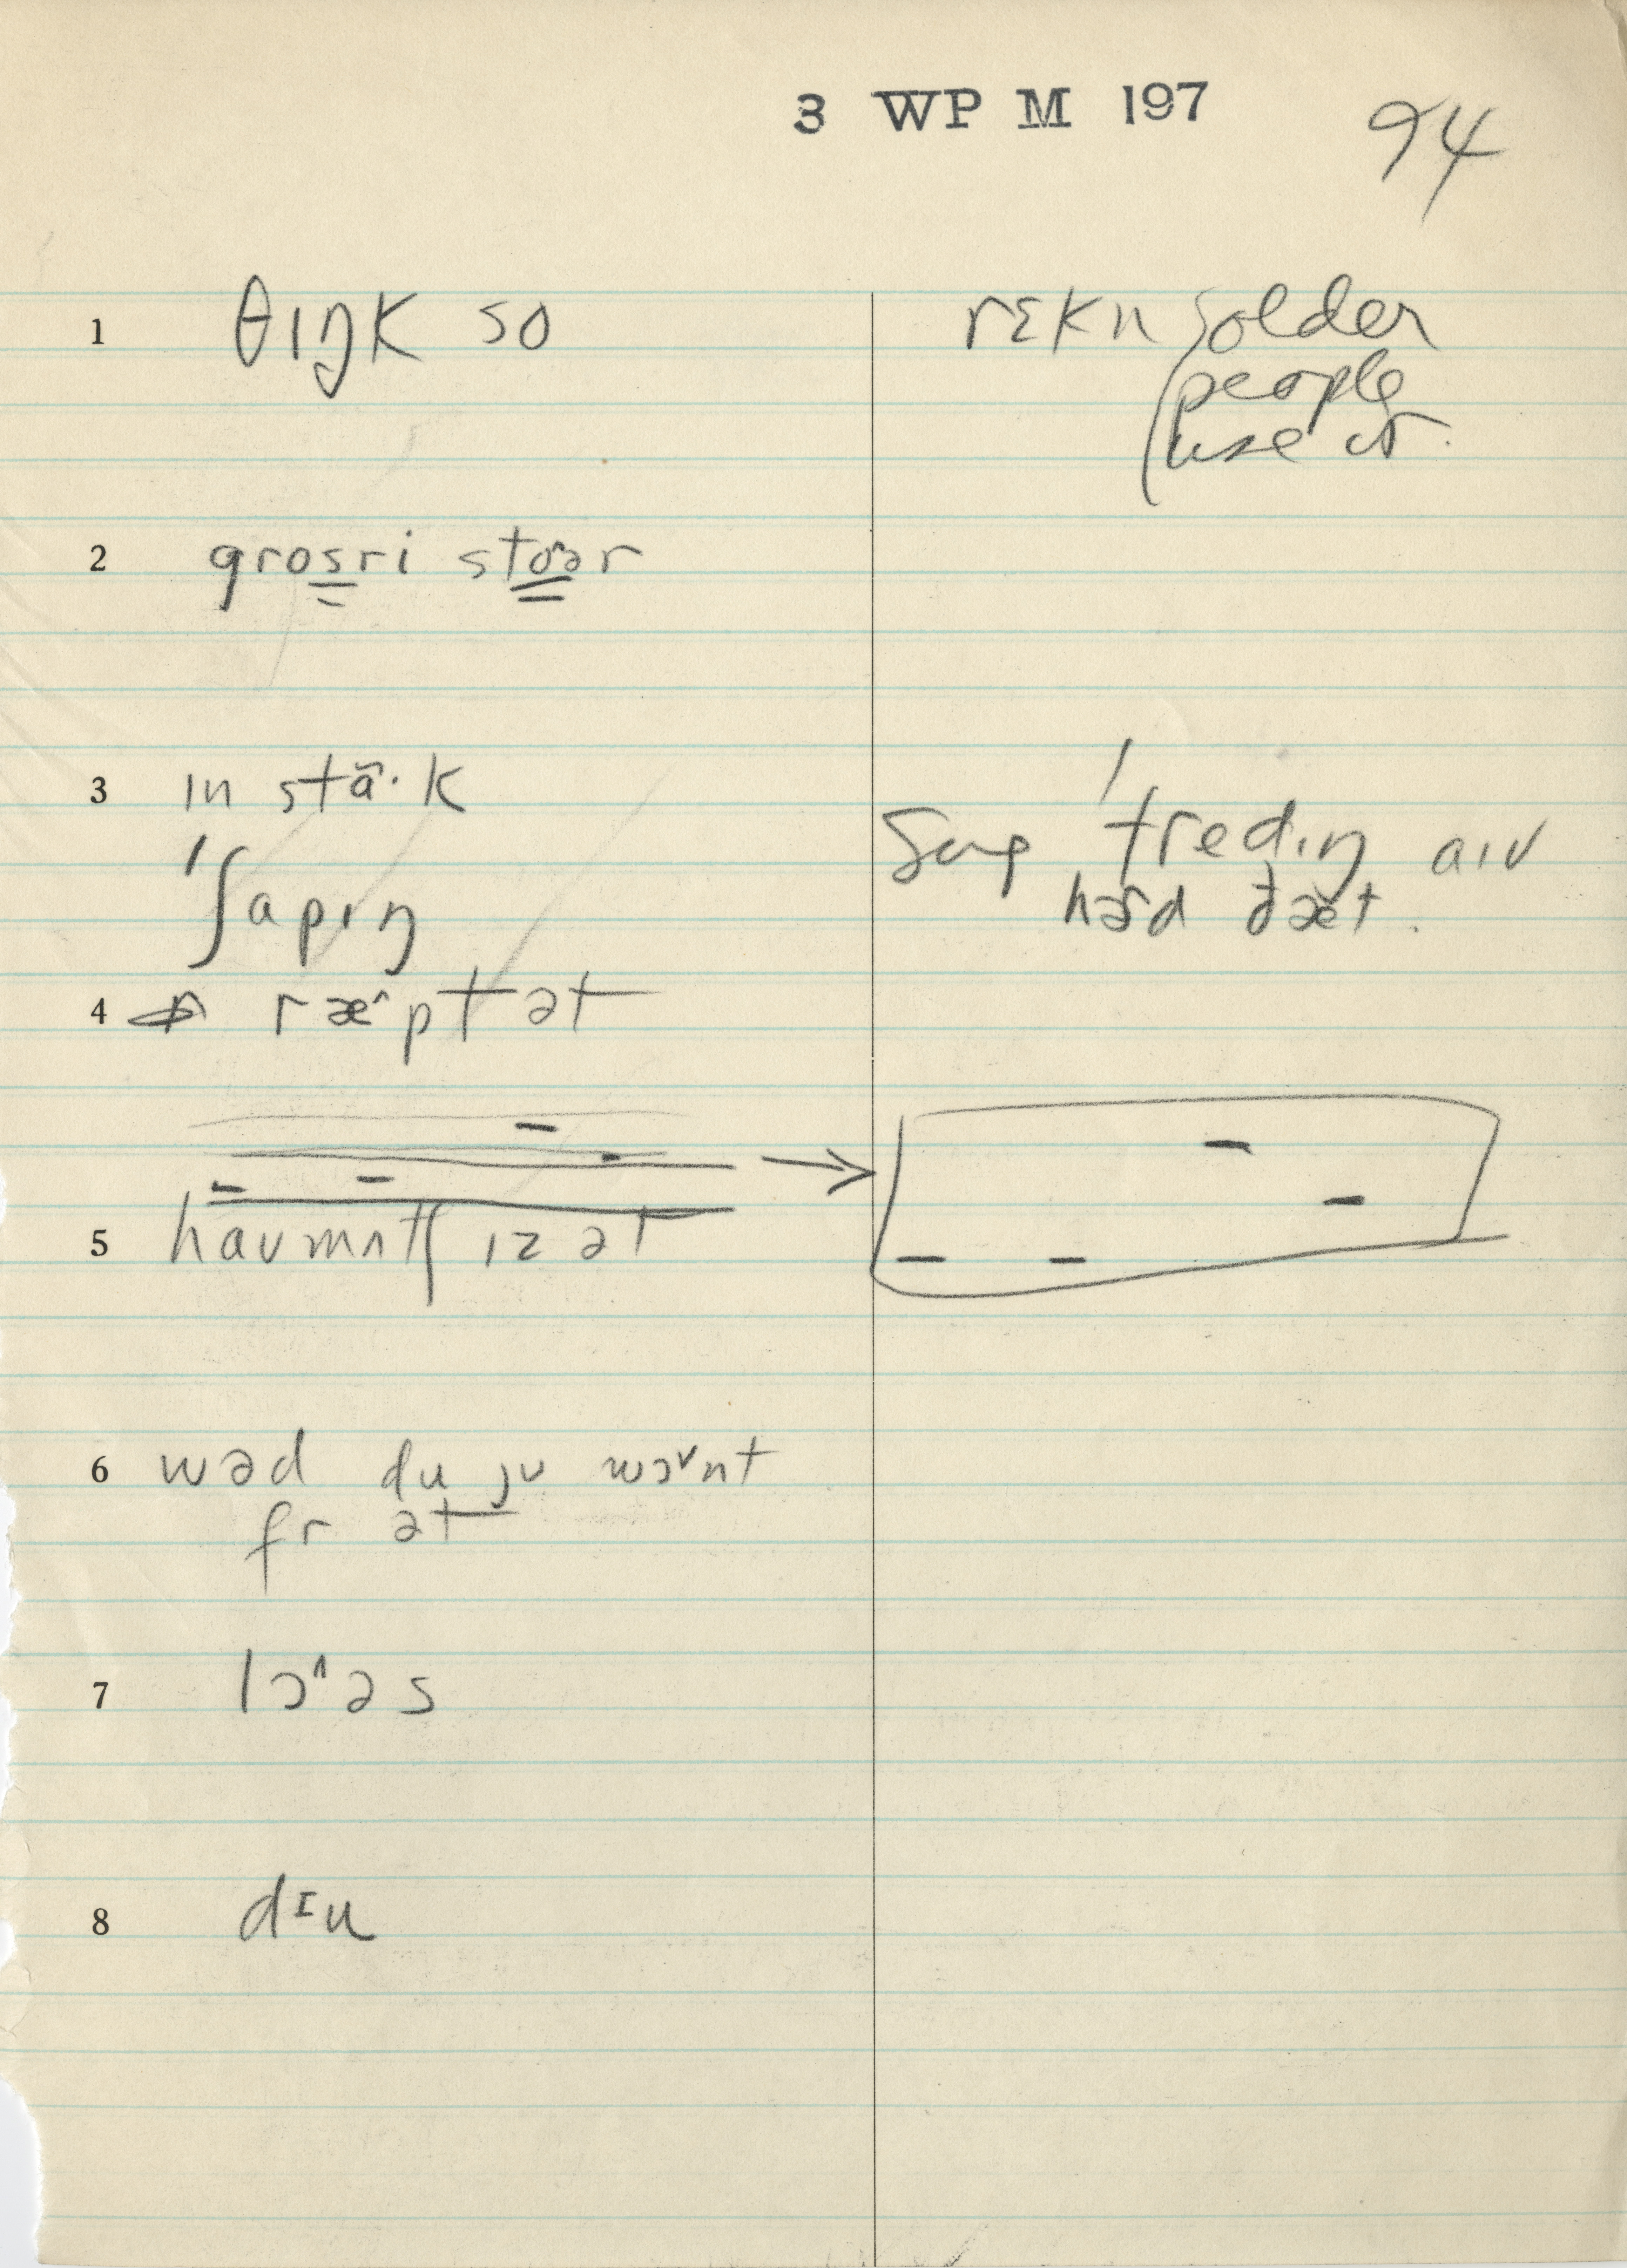 3 WP M 197
94
1 θɪŋk so
rɛkn older
people
use it.
2 grosri stoər
3 ɪn stɑ̃·k
ˈʃapɪŋ
Sug ˈtredɪŋ aɪv
hɚd ðæt.
4 ræ^pt ət
5 haumʌtʃ ɪz ət
6 wəd du ju wɔ˅nt
fr ət
7 lɔ^əs
8 dɪu